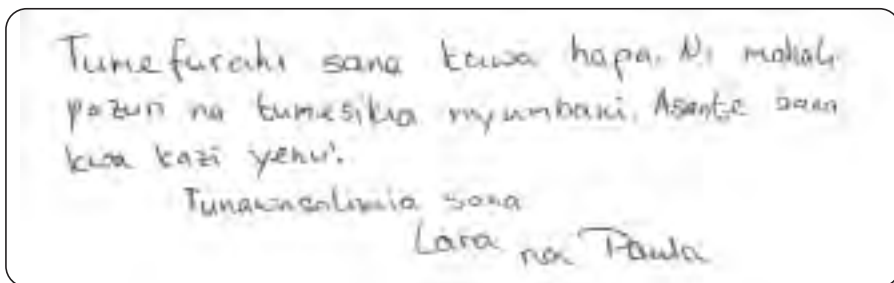 Tumefurahi sana kuwa hapa. Ni mahali
pazuri na tumesikia nyumbani. Asante sana
kwa kazi yenu.
Tunawasalimia sana
Lara na Paula